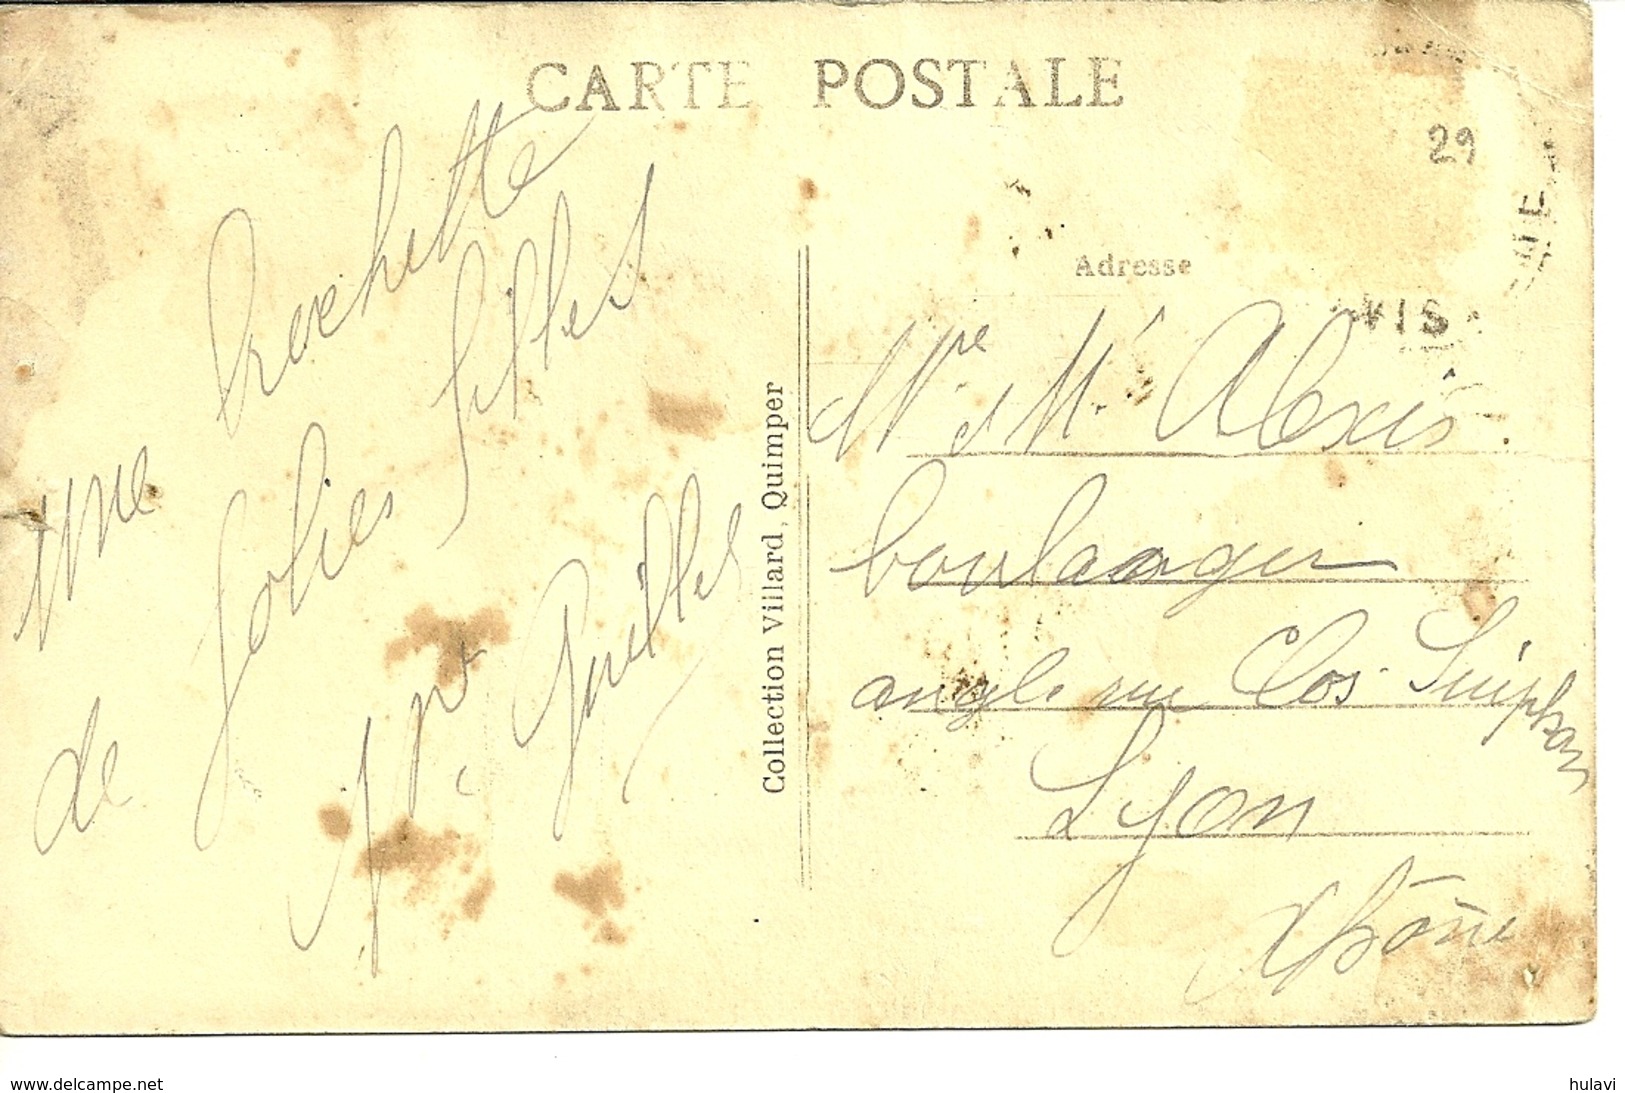 CARTE POSTALE
29
Adresse
une brochette
de jolies filles
Collection Villard, Quimper
Mre et Mr Alexis
boulanger
angle rue Clos Suiphon
Lyon
Rhône
www.delcampe.net
hulavi